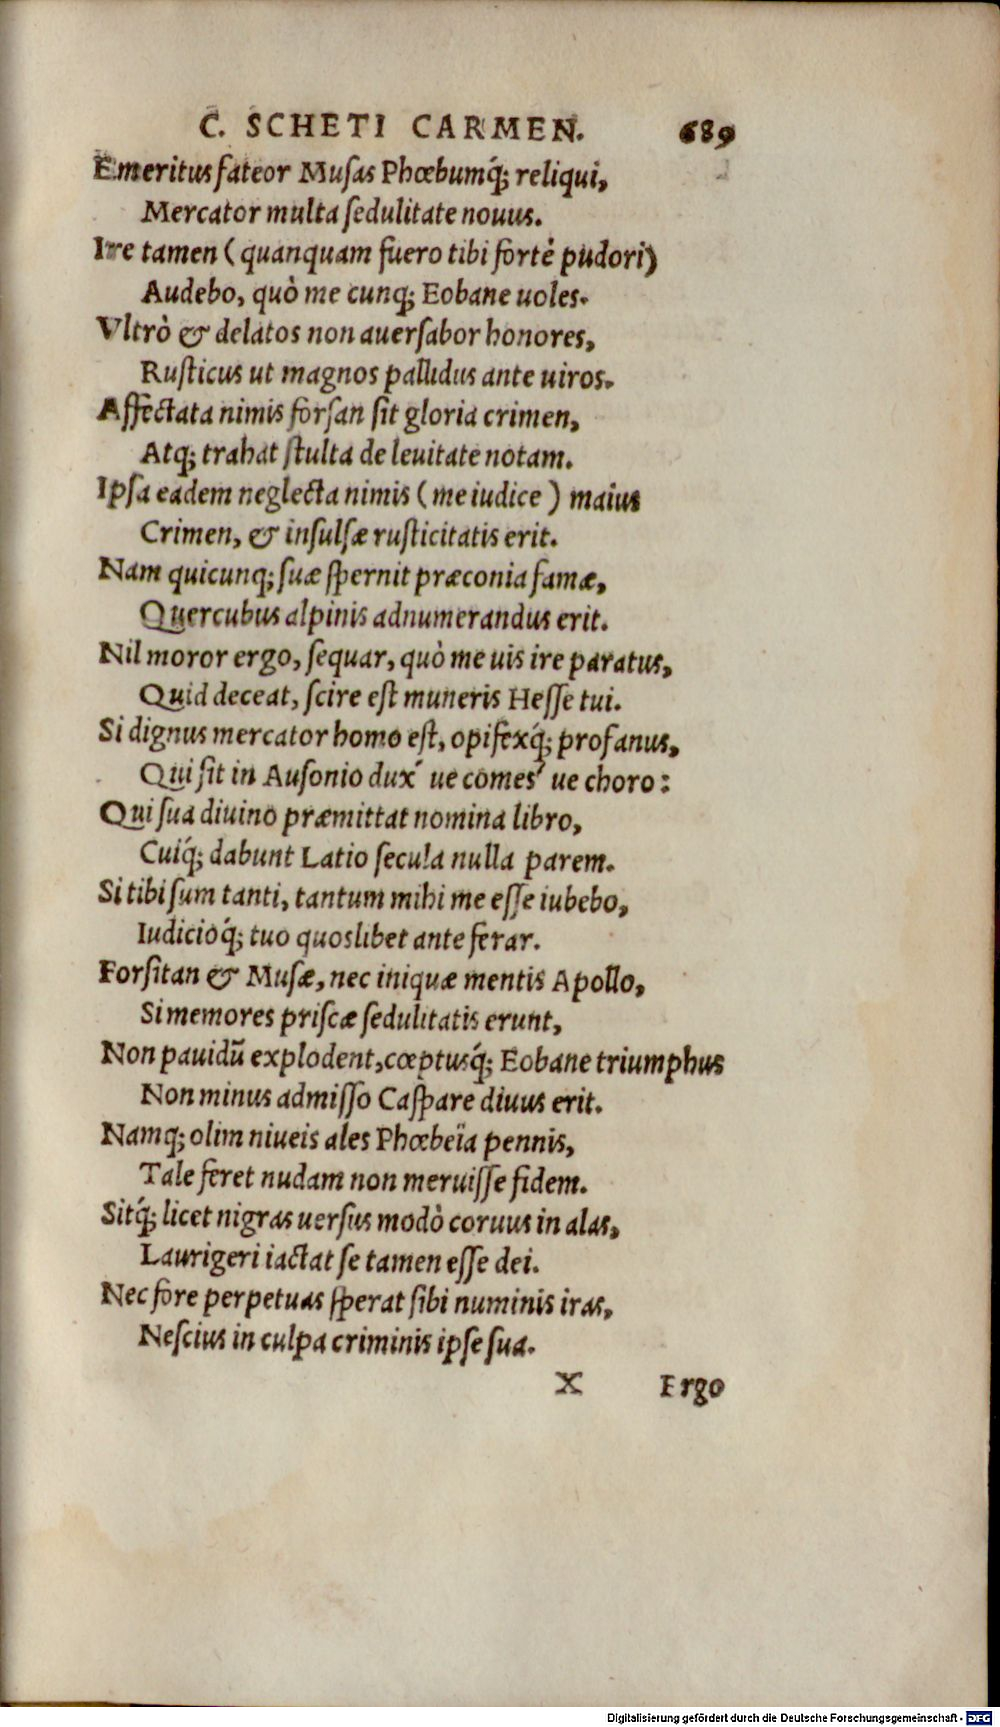 C. SCHETI CARMEN. 689
Emeritus fateor Musas Phœbumq́; reliqui,
Mercator multa ſedulitate nouus.
Ire tamen (quanquam fuero tibi fortè pudori)
Audebo, quò me cunq; Eobane uoles.
Vltrò & delatos non auerſabor honores,
Ruſticus ut magnos pallidus ante uiros.
Affectata nimis forſan ſit gloria crimen,
Atq; trahat ſtulta de leuitate notam.
Ipſa eadem neglecta nimis (me iudice) maius
Crimen, & inſulſæ ruſticitatis erit.
Nam quicunq; ſuæ ſpernit præconia famæ,
Quercubus alpinis adnumerandus erit.
Nil moror ergo, ſequar, quò me uis ire paratus,
Quid deceat, ſcire eſt muneris Heſſe tui.
Si dignus mercator homo eſt, opifexq́; profanus,
Qui ſit in Auſonio dux' ue comes' ue choro:
Qui ſua diuino præmittat nomina libro,
Cuiq́; dabunt Latio ſecula nulla parem.
Si tibi ſum tanti, tantum mihi me eſſe iubebo,
Iudicioq́; tuo quoslibet ante ferar.
Forſitan & Muſæ, nec iniquæ mentis Apollo,
Si memores priſcæ ſedulitatis erunt,
Non pauidũ explodent, cœptusq́; Eobane triumphus
Non minus admiſſo Caſpare diuus erit.
Namq; olim niueis ales Phœbeïa pennis,
Tale feret nudam non meruiſſe fidem.
Sitq́; licet nigras uerſus modò coruus in alas,
Laurigeri iactat ſe tamen eſſe dei.
Nec fore perpetuas ſperat ſibi numinis iras,
Neſcius in culpa criminis ipſe ſua.
X Ergo
Digitalisierung gefördert durch die Deutsche Forschungsgemeinschaft - DFG